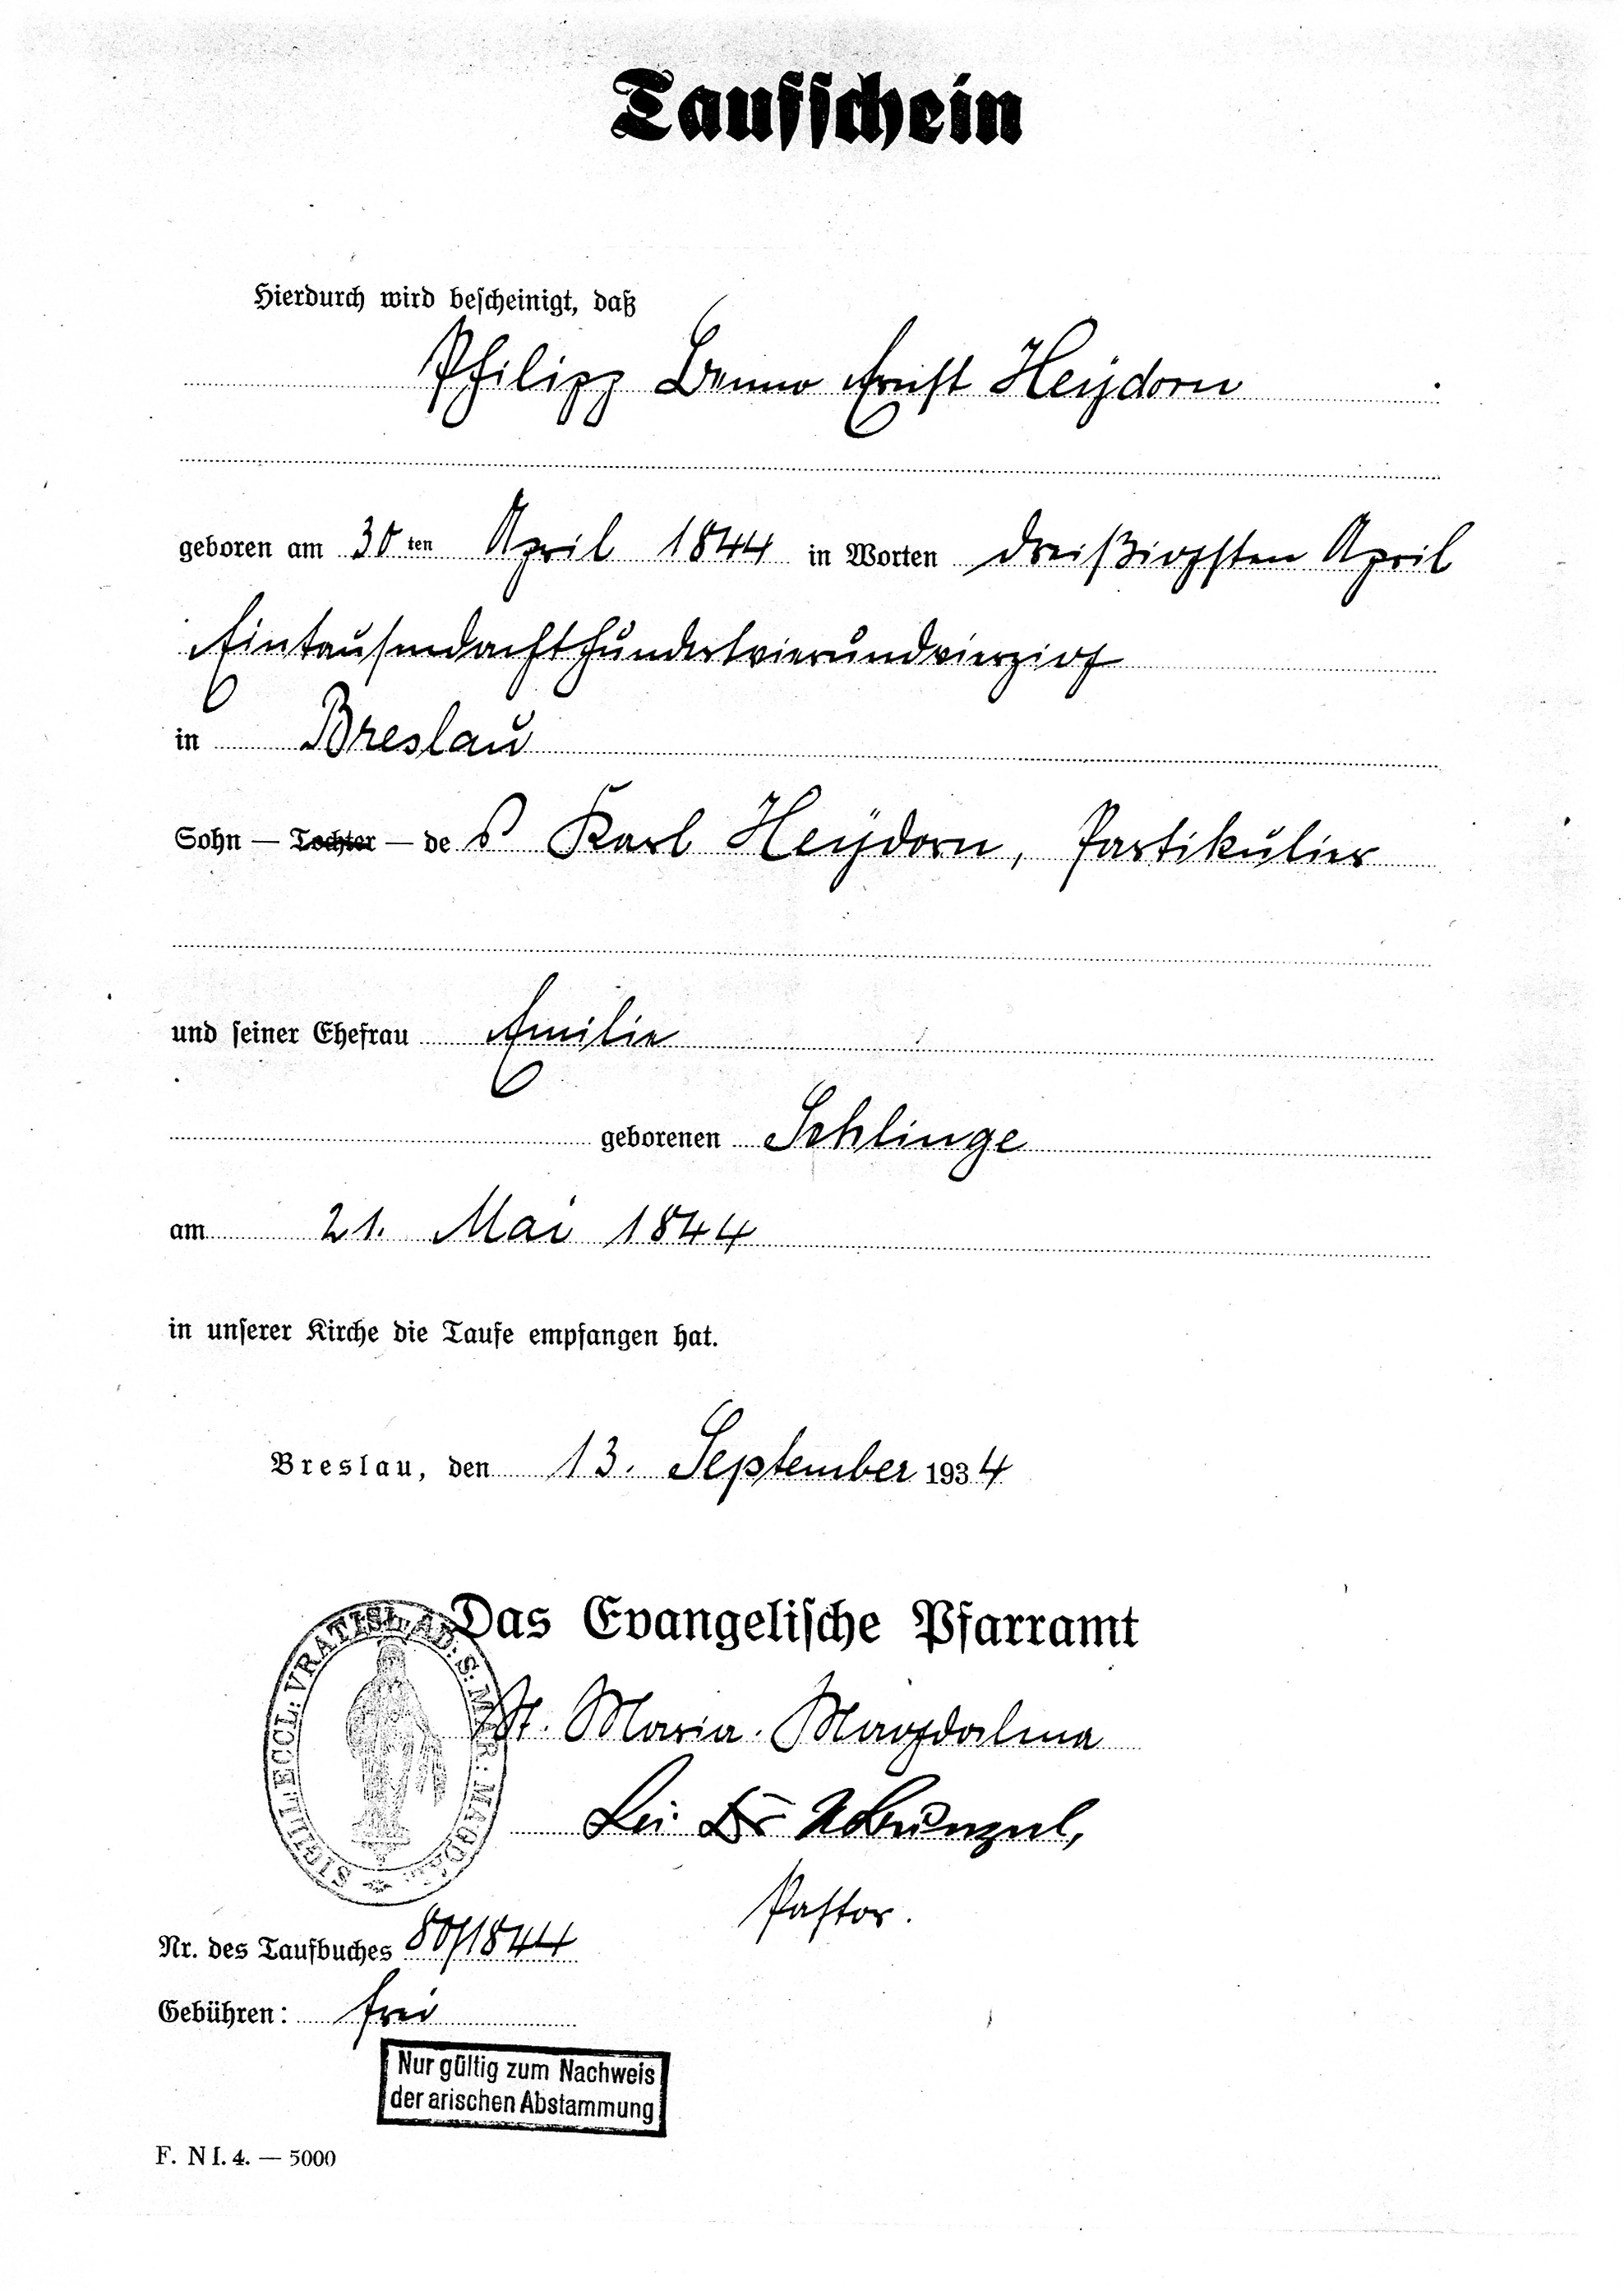 Taufschein
Hierdurch wird bescheinigt, daß
Philipp Benno Ernst Heydorn
geboren am 30 ten April 1844 in Worten dreißigsten April
Eintausendachthundertvierundvierzig
in Breslau
Sohn — Tochter — de s Karl Heydorn, Partikulier
und seiner Ehefrau Emilie
geborenen Schlinge
am 21. Mai 1844
in unserer Kirche die Taufe empfangen hat.
Breslau, den 13. September 1934
Das Evangelische Pfarramt
SIGILL: ECCL: VRATISL: AD: S: MAR: MAGDAL:
St. Maria-Magdalena
Pastor.
Nr. des Taufbuches 80/1844
Gebühren: frei
Nur gültig zum Nachweis
der arischen Abstammung
F. N I. 4. — 5000